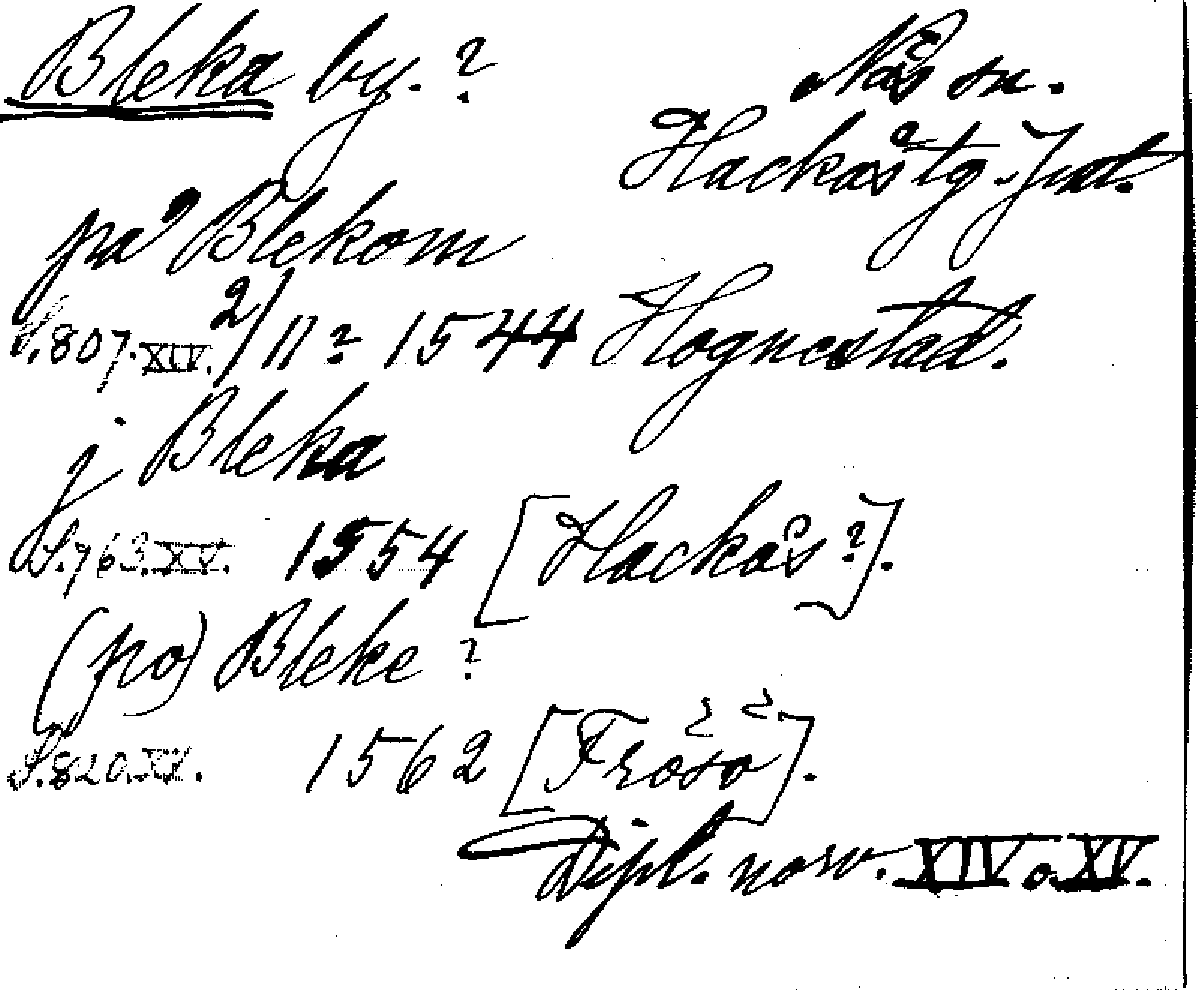 Bleka by. ?
Näs sn.
Hackås tg. Jmt.
på Blekom
S. 807. XIV. 2/11 ? 1544 Hognestad.
j Bleka
S. 763. XV. 1554 [Hackås ?].
(po) Bleke ?
S. 820. XV. 1562 [Frösö].
Dipl. norv. XIV o. XV.